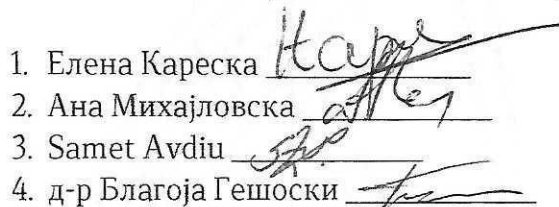 1. Елена Кареска
2. Ана Михајловска
3. Samet Avdiu
4. д-р Благоја Гешоски